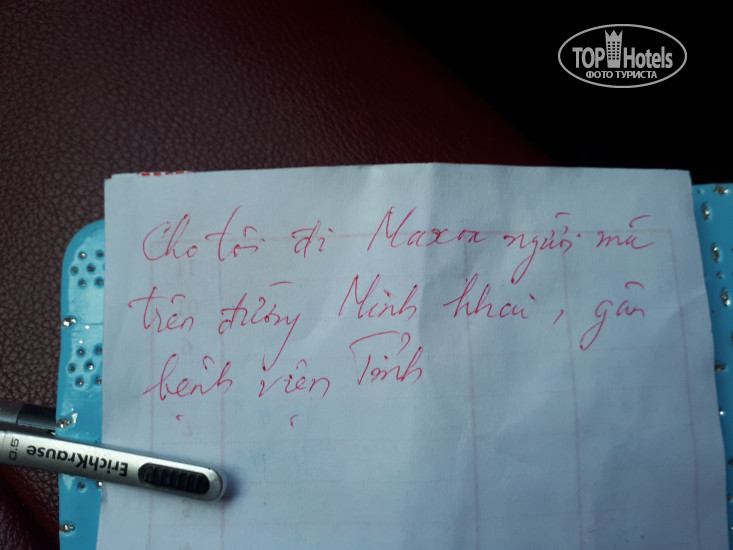 TOP Hotels
ФОТО ТУРИСТА
Cho tôi đi Maxxa người mù
trên đường Minh Khai, gần
bệnh viện Tỉnh
ErichKrause
0.5